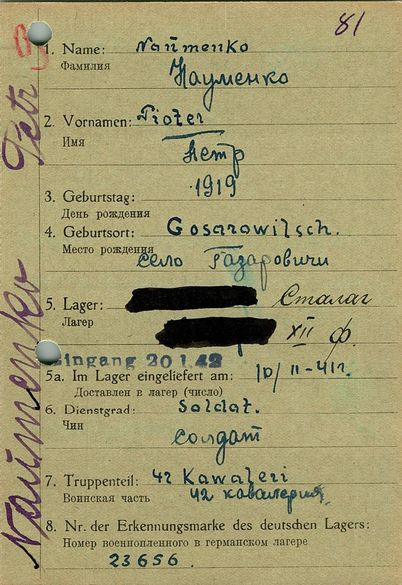 81
1. Name: Naúmenko
Фамилия Науменко
2. Vornamen: Pioter
Имя Петр
1919
3. Geburtstag:
День рождения
4. Geburtsort: Gosarowitsch.
Место рождения село Газаровичи
5. Lager: Сталаг
Лагер XII ф.
Eingang 20 1.42
5a. Im Lager eingeliefert am: 10/II-41г.
Доставлен в лагер (число)
6. Dienstgrad: Soldat.
Чин солдат
7. Truppenteil: 42 Kawaleri
Воинская часть 42 кавалерия
8. Nr. der Erkennungsmarke des deutschen Lagers:
Номер военнопленного в германском лагере
23656.
Naúmenko Petr